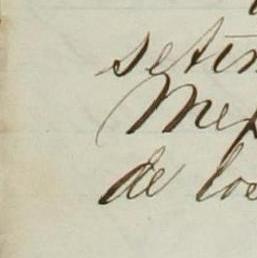 setin
Mex
de los